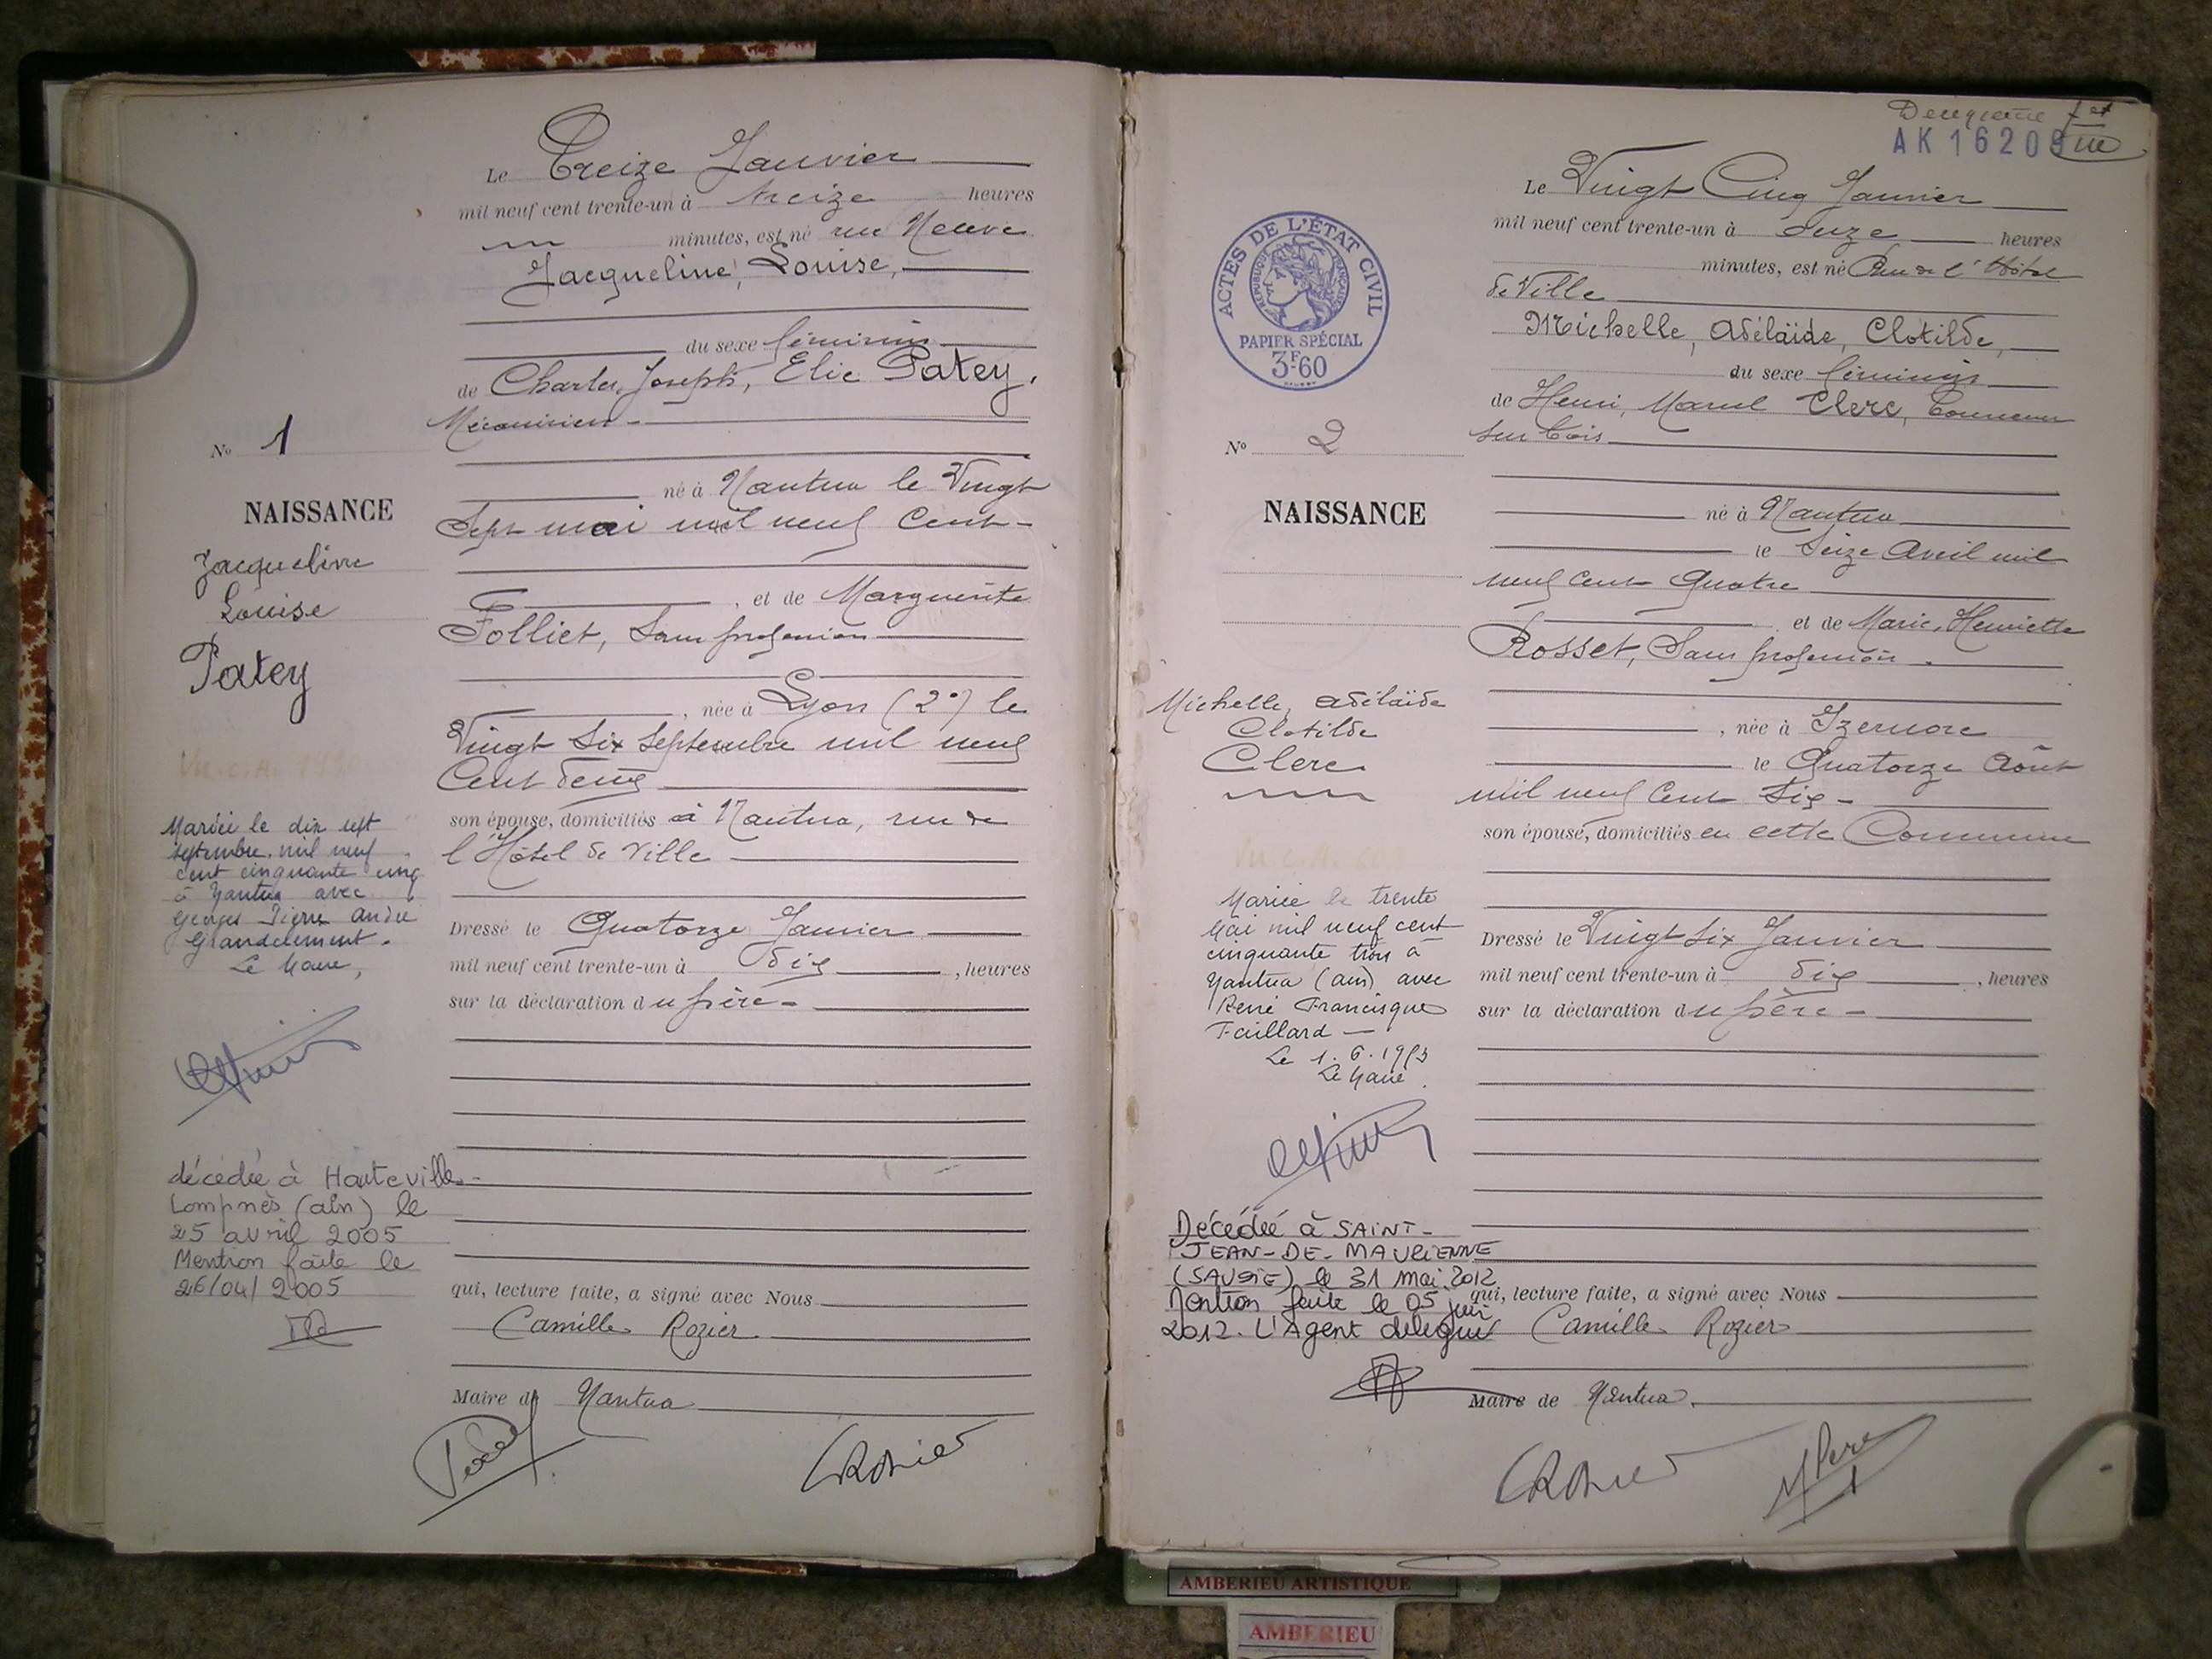 Le Treize Janvier
mil neuf cent trente-un à treize heures
minutes, est né rue Neuve
Jacqueline, Louise,
du sexe féminin
de Charles, Joseph, Elie Patey,
Mécanicien
né à Nantua le Vingt
Sept mai mil neuf Cent
, et de Marguerite
Folliet, Sans profession
, née à Lyon (2°) le
Vingt Six Septembre mil neuf
Cent deux
son épouse, domiciliés à Nantua, rue de
l'Hôtel de Ville
Dressé le Quatorze Janvier
mil neuf cent trente-un à dix , heures
sur la déclaration du père
qui, lecture faite, a signé avec Nous
Camille Rozier
Maire de Nantua
CRozier
N° 1
NAISSANCE
Jacqueline
Louise
Patey
Mariée le dix sept
septembre mil neuf
cent cinquante cinq
à Nantua avec
Georges Pierre André
Grandclément.
Le Maire,
décédée à Hauteville-
Lompnès (ain) le
25 avril 2005
Mention faite le
26/04/2005
Deuxième
AK 16209
Le Vingt Cinq Janvier
mil neuf cent trente-un à onze heures
minutes, est né Rue de l'Hôtel
de Ville
Michelle, Adélaïde, Clotilde,
du sexe féminin
de Henri, Marcel Clerc, Tourneur
sur bois
né à Nantua
le Seize Avril mil
neuf Cent Quatre
et de Marie, Henriette
Rosset, Sans profession.
, née à Izernore
le Quatorze Août
mil neuf Cent Six
son épouse, domiciliés en cette Commune
Dressé le Vingt Six Janvier
mil neuf cent trente-un à dix , heures
sur la déclaration du père
qui, lecture faite, a signé avec Nous
Camille Rozier
Maire de Nantua.
CRozier
ACTES DE L'ÉTAT CIVIL
RÉPUBLIQUE FRANÇAISE
PAPIER SPÉCIAL
3F60
N° 2
NAISSANCE
Michelle, Adélaïde
Clotilde
Clerc
Mariée le trente
Mai mil neuf cent
cinquante trois à
Nantua (ain) avec
René Francisque
Faillard
Le 1.6.1953
Le Maire.
Décédée à SAINT-
JEAN-DE-MAURIENNE
(SAVOIE) le 31 mai 2012
Mention faite le 05 juin
2012. L'Agent délégué
AMBERIEU ARTISTIQUE
AMBERIEU